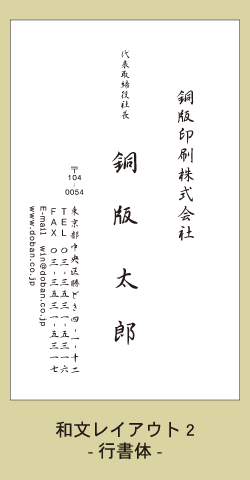 銅版印刷株式会社
代表取締役社長
銅版 太郎
〒104-0054
東京都中央区勝どき四-一-十二
TEL 〇三-三五三一-五三一六
FAX 〇三-三五三一-五三一七
E-mail win@doban.co.jp
www.doban.co.jp
和文レイアウト2
- 行書体 -